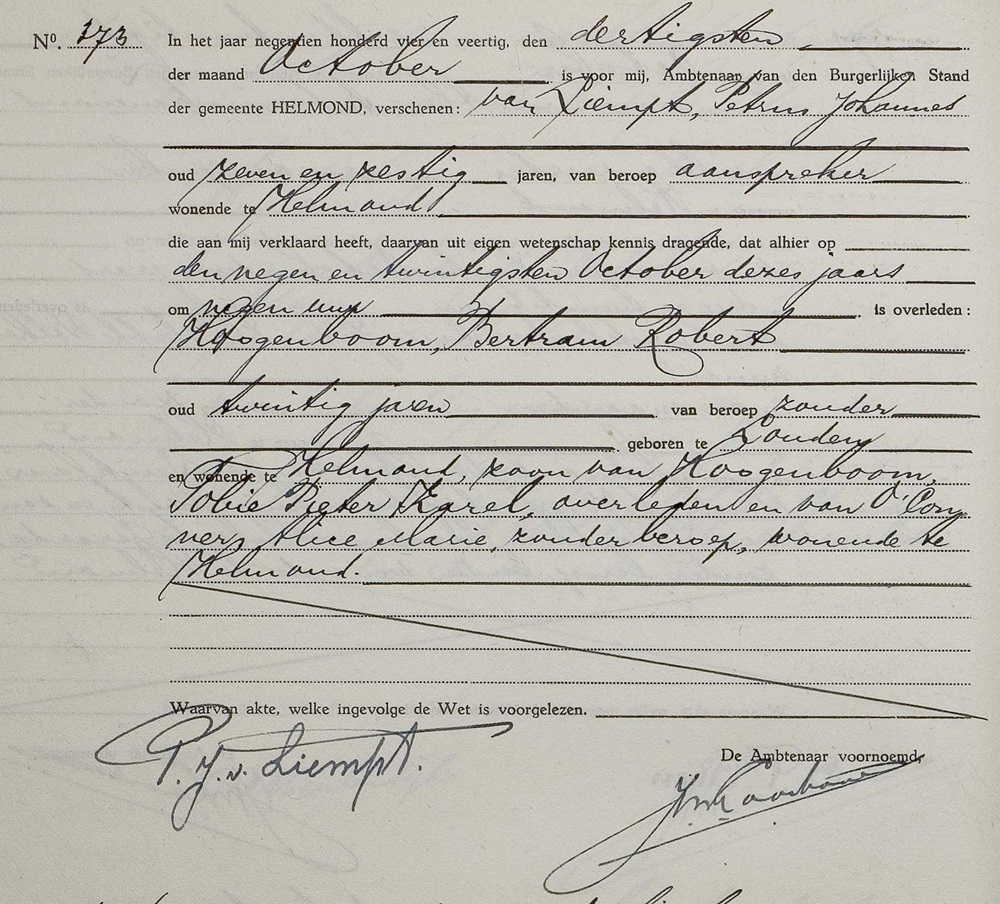 No. 373 In het jaar negentien honderd vier en veertig, den dertigsten
der maand October is voor mij, Ambtenaar van den Burgerlijken Stand
der gemeente HELMOND, verschenen: van Liempt, Petrus Johannes
oud zeven en zestig jaren, van beroep aanspreker
wonende te Helmond
die aan mij verklaard heeft, daarvan uit eigen wetenschap kennis dragende, dat alhier op
den negen en twintigsten October dezes jaars
om negen uur is overleden:
Hoogenboom, Bertram Robert
oud twintig jaren van beroep zonder
geboren te Londen
en wonende te Helmond, zoon van Hoogenboom,
Tobie Pieter Karel, overleden en van O'Con
ver, Alice Marie, zonder beroep, wonende te
Helmond.
Waarvan akte, welke ingevolge de Wet is voorgelezen.
De Ambtenaar voornoemd,
P. J. v. Liempt.